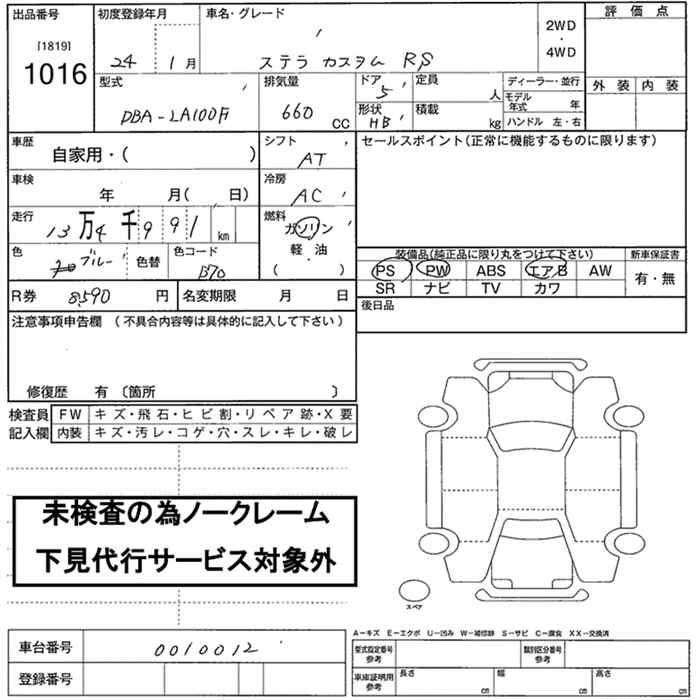 出品番号 初度登録年月 車名・グレード 評価点
[1819] 2WD
1016 24 1月 ステラ カスタム RS ・
4WD
型式 排気量 ドア 定員 ディーラー・並行 外装 内装
5 人 モデル年式 年
DBA-LA100F 660 CC 形状 積載
HB kg ハンドル 左・右
車歴 シフト セールスポイント(正常に機能するものに限ります)
自家用・( ) AT
車検 冷房
年 月( 日) AC
走行 燃料
13万4千991km ガソリン
色 色コード 軽・油 装備品(純正品に限り丸をつけて下さい) 新車保証書
ブルー 色替 B70 ( ) PS PW ABS エアB AW 有・無
SR ナビ TV カワ
R券 8,590 円 名変期限 月 日 後日品
注意事項申告欄 (不具合内容等は具体的に記入して下さい)
修復歴 有 〔箇所 〕
検査員 FW キズ・飛石・ヒビ割・リペア跡・X要
記入欄 内装 キズ・汚レ・コゲ・穴・スレ・キレ・破レ
未検査の為ノークレーム
下見代行サービス対象外
スペア
A-キズ E-エクボ U-凹み W-補修跡 S-サビ C-腐食 XX-交換済
車台番号 0010012 型式指定番号 参考 類別区分番号 参考
登録番号 車庫証明用 参考 長さ cm 幅 cm 高さ cm